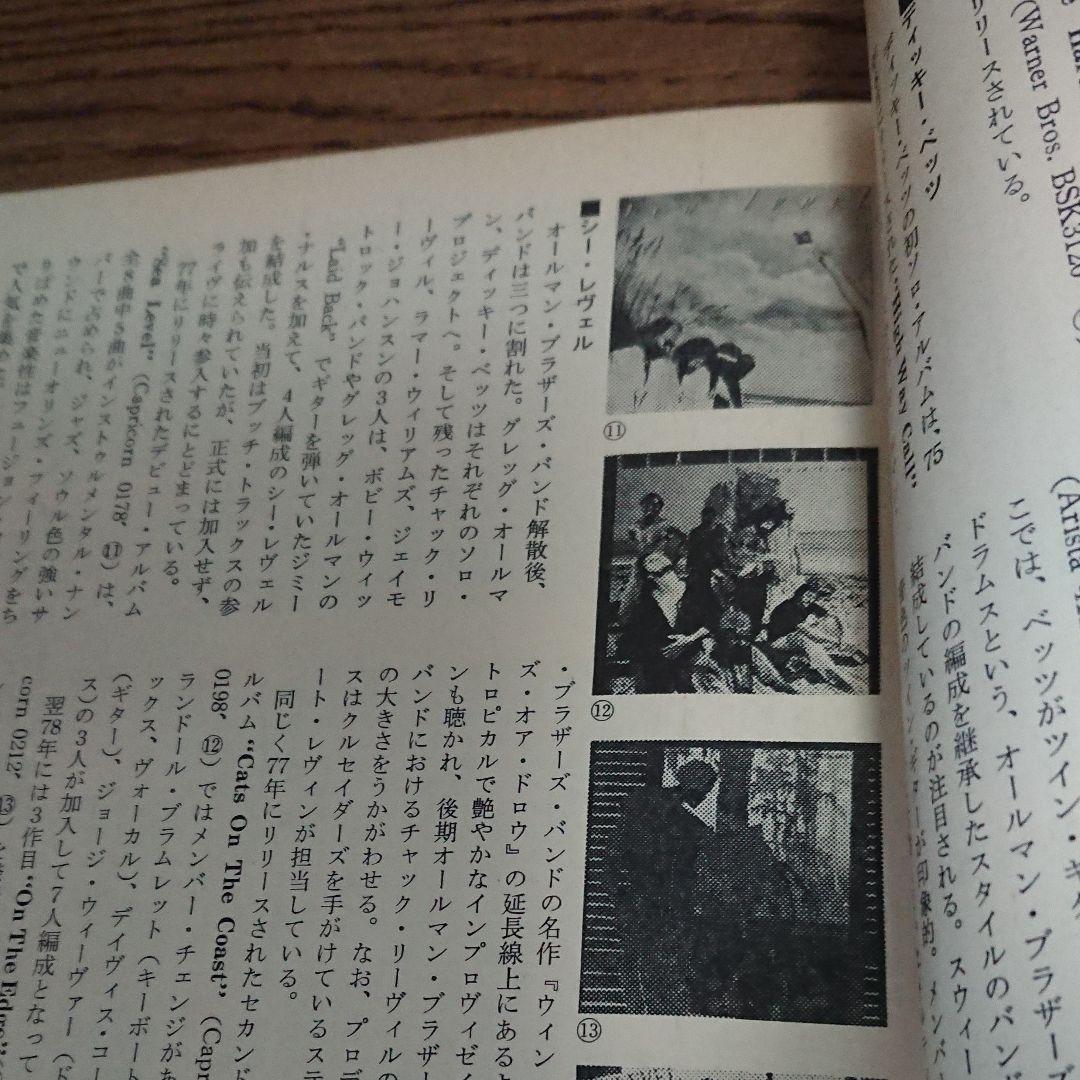 (Warner Bros. BSK3120
リリースされている。
■ディッキー・ベッツ
ディッキー・ベッツの初ソロ・アルバムは、75
"High Way Call"
(Arista
こでは、ベッツがツイン・ギタ
ドラムスという、オールマン・ブラザーズ
バンドの編成を継承したスタイルのバンド
結成しているのが注目される。スウィー
⑪
⑫
⑬
■シー・レヴェル
オールマン・ブラザーズ・バンド解散後、
バンドは三つに割れた。グレッグ・オールマ
ン、ディッキー・ベッツはそれぞれのソロ・
プロジェクトへ。そして残ったチャック・リ
ーヴィル、ラマー・ウィリアムズ、ジェイモ
ー・ジョハンスンの3人は、ボビー・ウィッ
トロック・バンドやグレッグ・オールマンの
"Laid Back" でギターを弾いていたジミー
・ナルスを加えて、4人編成のシー・レヴェル
を結成した。当初はブッチ・トラックスの参
加も伝えられていたが、正式には加入せず、
ライヴに時々参入するにとどまっている。
77年にリリースされたデビュー・アルバム
"Sea Level" (Capricorn 0178、⑪) は、
全8曲中5曲がインストゥルメンタル・ナン
バーで占められ、ジャズ、ソウル色の強いサ
ウンドにニューオリンズ・フィーリングをち
りばめた音楽性はフュージョン・
・ブラザーズ・バンドの名作『ウィン
ズ・オア・ドロウ』の延長線上にあると
トロピカルで艶やかなインプロヴィゼイ
ンも聴かれ、後期オールマン・ブラザー
バンドにおけるチャック・リーヴィルの
の大きさをうかがわせる。なお、プロデ
スはクルセイダーズを手がけているステ
ート・レヴィンが担当している。
同じく77年にリリースされたセカンド
ルバム "Cats On The Coast" (Capr
0198、⑫) ではメンバー・チェンジがあ
ランドール・ブラムレット (キーボート
ックス、ヴォーカル)、デイヴィス・コー
(ギター)、ジョージ・ウィーヴァー (ド
ス) の3人が加入して7人編成となって
翌78年には3作目 "On The Edge"
corn 0212、⑬)